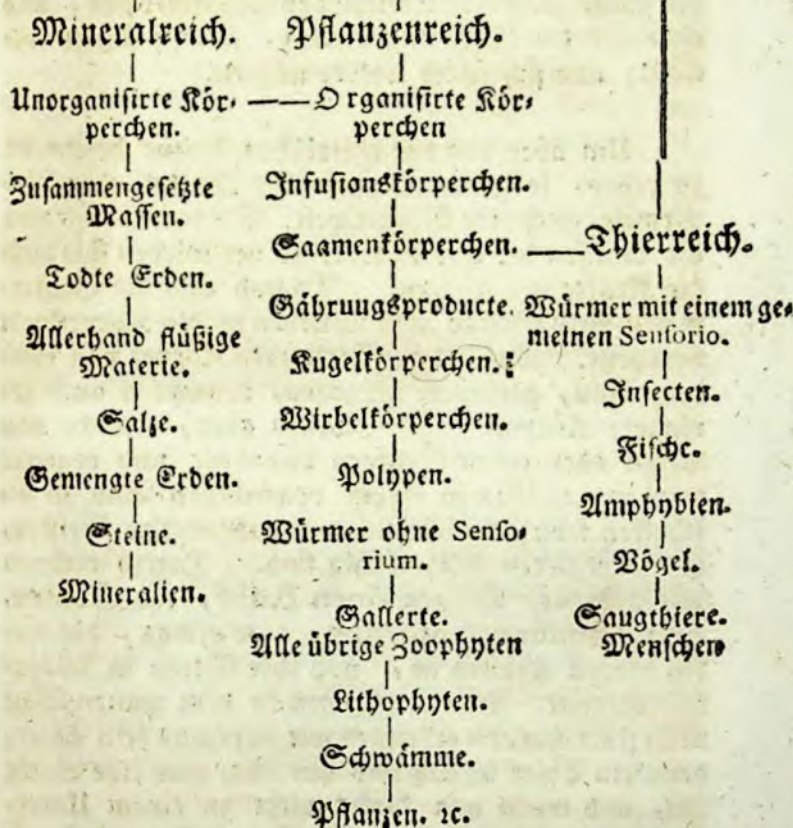 Mineralreich.
Unorganisirte Kör-
perchen.
Zusammengesetzte
Massen.
Todte Erden.
Allerhand flüßige
Materie.
Salze.
Gemengte Erden.
Steine.
Mineralien.
Pflanzenreich.
Organisirte Kör-
perchen
Infusionskörperchen.
Saamenkörperchen.
Gähruugsproducte.
Kugelkörperchen.
Wirbelkörperchen.
Polypen.
Würmer ohne Senso-
rium.
Gallerte.
Alle übrige Zoophyten
Lithophyten.
Schwämme.
Pflanzen. ꝛc.
Thierreich.
Würmer mit einem ge-
meinen Sensorio.
Insecten.
Fische.
Amphybien.
Vögel.
Saugthiere.
Menschen